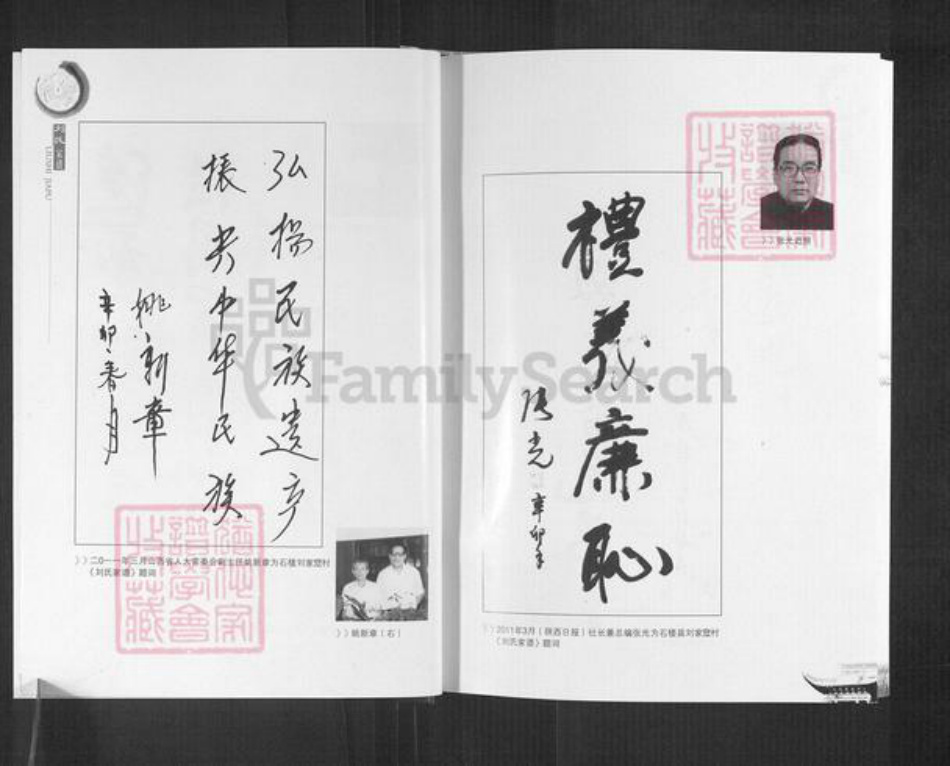 刘氏家谱
LIUSHI JIAPU
弘扬民族遗产
振兴中华民族
姚新章
辛卯春月
》》二〇一一年三月山西省人大常委会副主任姚新章为石楼刘家塔村
《刘氏家谱》题词
》》姚新章（右）
FamilySearch
禮義廉恥
張光
辛卯年
》》张光近照
》》2011年3月《陕西日报》社长兼总编张光为石楼县刘家塔村
《刘氏家谱》题词